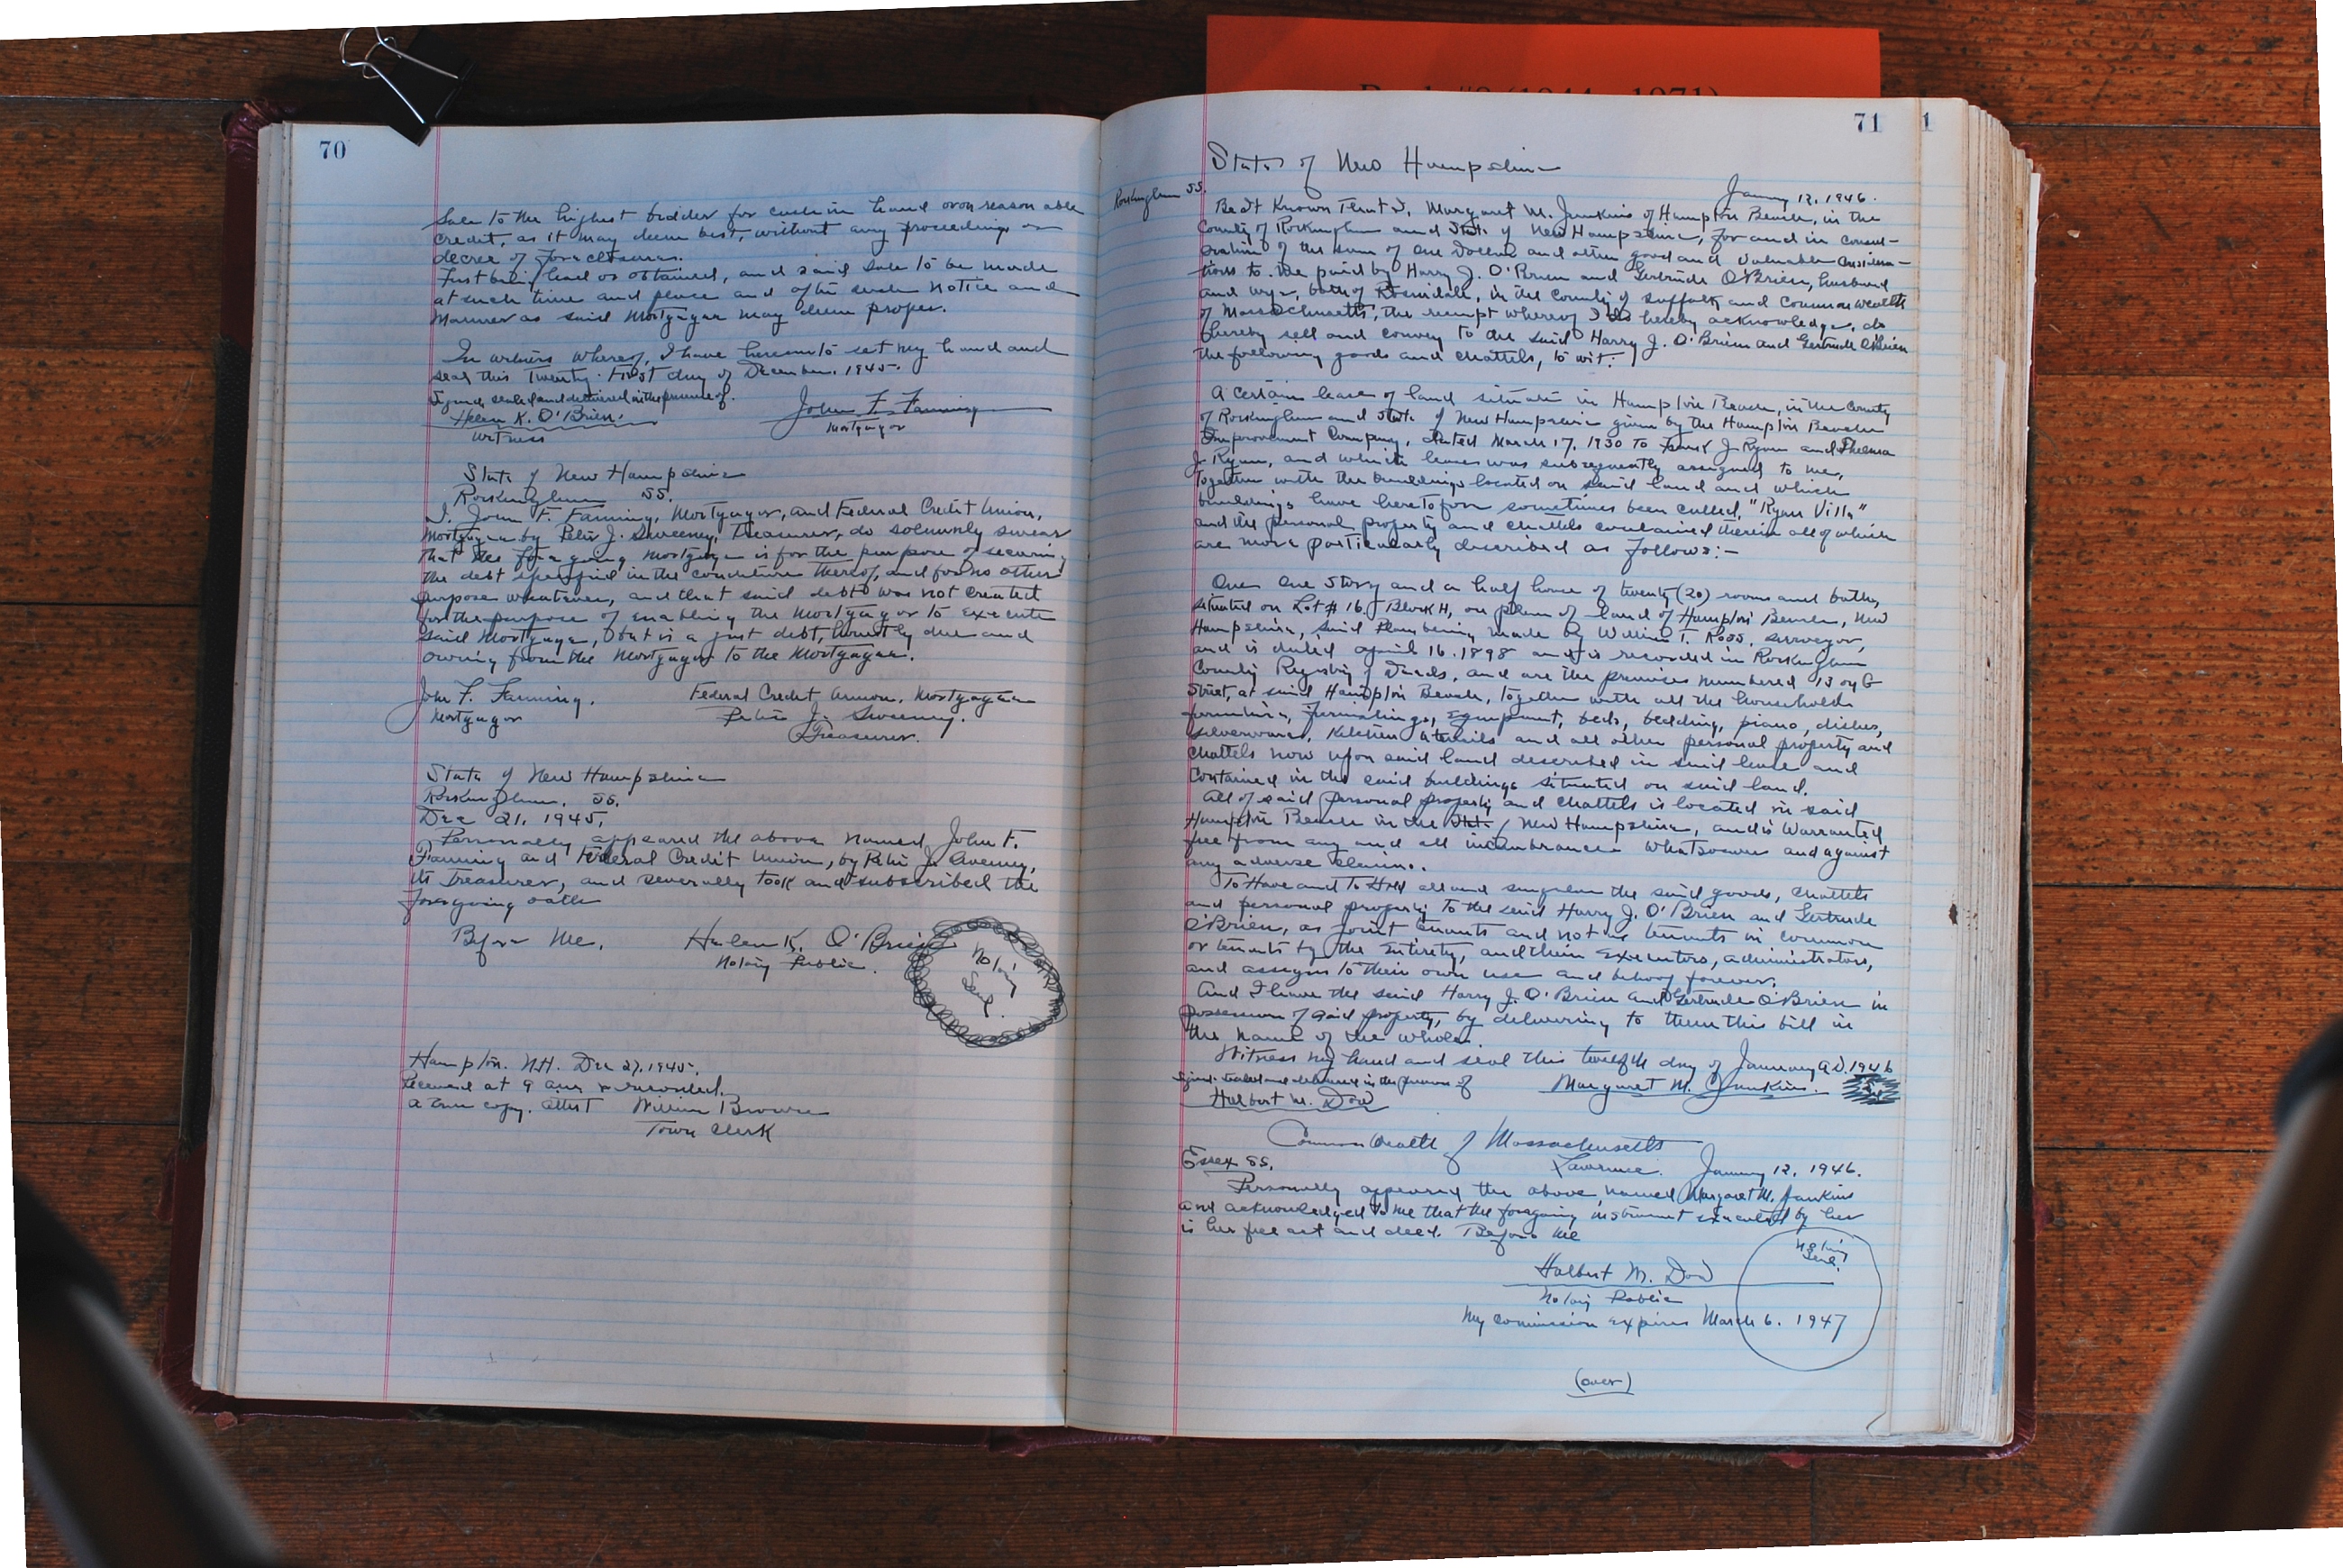 70
Sale to the highest bidder for cash in hand or on reasonable
credit, as it may deem best, without any proceedings or
decree of foreclosure.
first being had or obtained, and said sale to be made
at such time and place and after such notice and
manner as said Mortgagee may deem proper.
In witness whereof, I have hereunto set my hand and
seal this Twenty-First day of December. 1945.
Signed sealed and delivered in the presence of.
Helen K. O'Brien. John F. Fanning
Witness Mortgagor
State of New Hampshire
Rockingham SS.
I. John F. Fanning, Mortgagor, and Federal Credit Union,
Mortgagee by Peter J. Sweeney, Treasurer, do solemnly swear
that the foregoing mortgage is for the purpose of securing
the debt specified in the condition thereof, and for no other
purpose whatever, and that said debt was not created
for the purpose of enabling the Mortgagor to execute
said Mortgage, but is a just debt, honestly due and
owing from the Mortgagor to the Mortgagee.
John F. Fanning. Federal Credit Union. Mortgagee
Mortgagor Peter J. Sweeney.
Treasurer.
State of New Hampshire
Rockingham. SS.
Dec 21. 1945.
Personally appeared the above named John F.
Fanning and Federal Credit Union, by Peter J. Sweeney,
its Treasurer, and severally took and subscribed the
foregoing oath
Before Me. Helen K. O'Brien
Notary Public.
Notary
Seal.
Hampton. N.H. Dec 27. 1945.
Received at 9 am & recorded.
a true copy. attest William Brown
Town Clerk
71
1
State of New Hampshire
Rockingham SS. January 12, 1946.
Be it Known That I, Margaret M. Junkins of Hampton Beach, in the
County of Rockingham and State of New Hampshire, for and in consid-
eration of the sum of One Dollar and other good and valuable considera-
tions to me paid by Harry J. O'Brien and Gertrude O'Brien, husband
and wife, both of Roslindale, in the County of Suffolk and Commonwealth
of Massachusetts, the receipt whereof I do hereby acknowledge, do
hereby sell and convey to the said Harry J. O'Brien and Gertrude O'Brien
the following goods and chattels, to wit:
A certain lease of land situate in Hampton Beach, in the County
of Rockingham and State of New Hampshire given by the Hampton Beach
Improvement Company, dated March 17, 1930 to Frank J. Ryan and Thelma
J. Ryan, and which lease was subsequently assigned to me,
Together with the buildings located on said land and which
buildings have heretofore sometimes been called, "Ryan Villa"
and the personal property and chattels contained therein all of which
are more particularly described as follows:-
One One Story and a half house of twenty (20) rooms and baths,
situated on Lot # 16. Block H, on plan of land of Hampton Beach, New
Hampshire, said Plan being made by William T. Ross, surveyor,
and is dated April 16. 1898 and is recorded in Rockingham
County Registry of Deeds, and are the premises numbered 13 on G
Street, at said Hampton Beach, together with all the household
furniture, furnishings, equipment, beds, bedding, piano, dishes,
silverware, Kitchen utensils and all other personal property and
chattels now upon said land described in said lease and
contained in the said buildings situated on said land.
All of said personal property and chattels is located in said
Hampton Beach in the State / New Hampshire, and is Warranted
free from any and all incumbrances whatsoever and against
any adverse claim.
To Have and To Hold all and singular the said goods, chattels
and personal property to the said Harry J. O'Brien and Gertrude
O'Brien, as joint tenants and not as tenants in common
or tenants by the entirety, and their executors, administrators,
and assigns to their own use and behoof forever.
And I have the said Harry J. O'Brien and Gertrude O'Brien in
possession of said property, by delivering to them this bill in
the name of the whole.
Witness my hand and seal this twelfth day of January A.D. 1946
Signed sealed and delivered in the presence of Margaret M. Junkins.
Halbert M. Dow
Commonwealth of Massachusetts
Essex SS. Lawrence. January 12, 1946.
Personally appeared the above named Margaret M. Junkins
and acknowledged to me that the foregoing instrument executed by her
is her free act and deed. Before Me
Notary
Seal.
Halbert M. Dow
Notary Public
My commission expires March 6. 1947
(over)